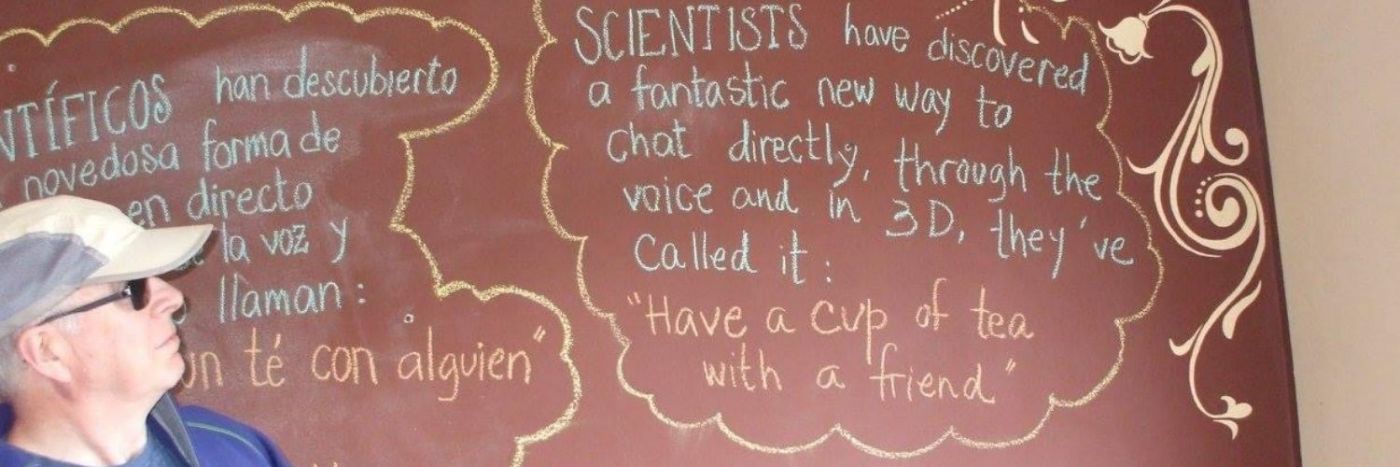 NTÍFICOS han descubierto
novedosa forma de
en directo
la voz y
llaman :
un té con alguien"
SCIENTISTS have discovered
a fantastic new way to
chat directly, through the
voice and in 3D, they've
called it :
"Have a cup of tea
with a friend"